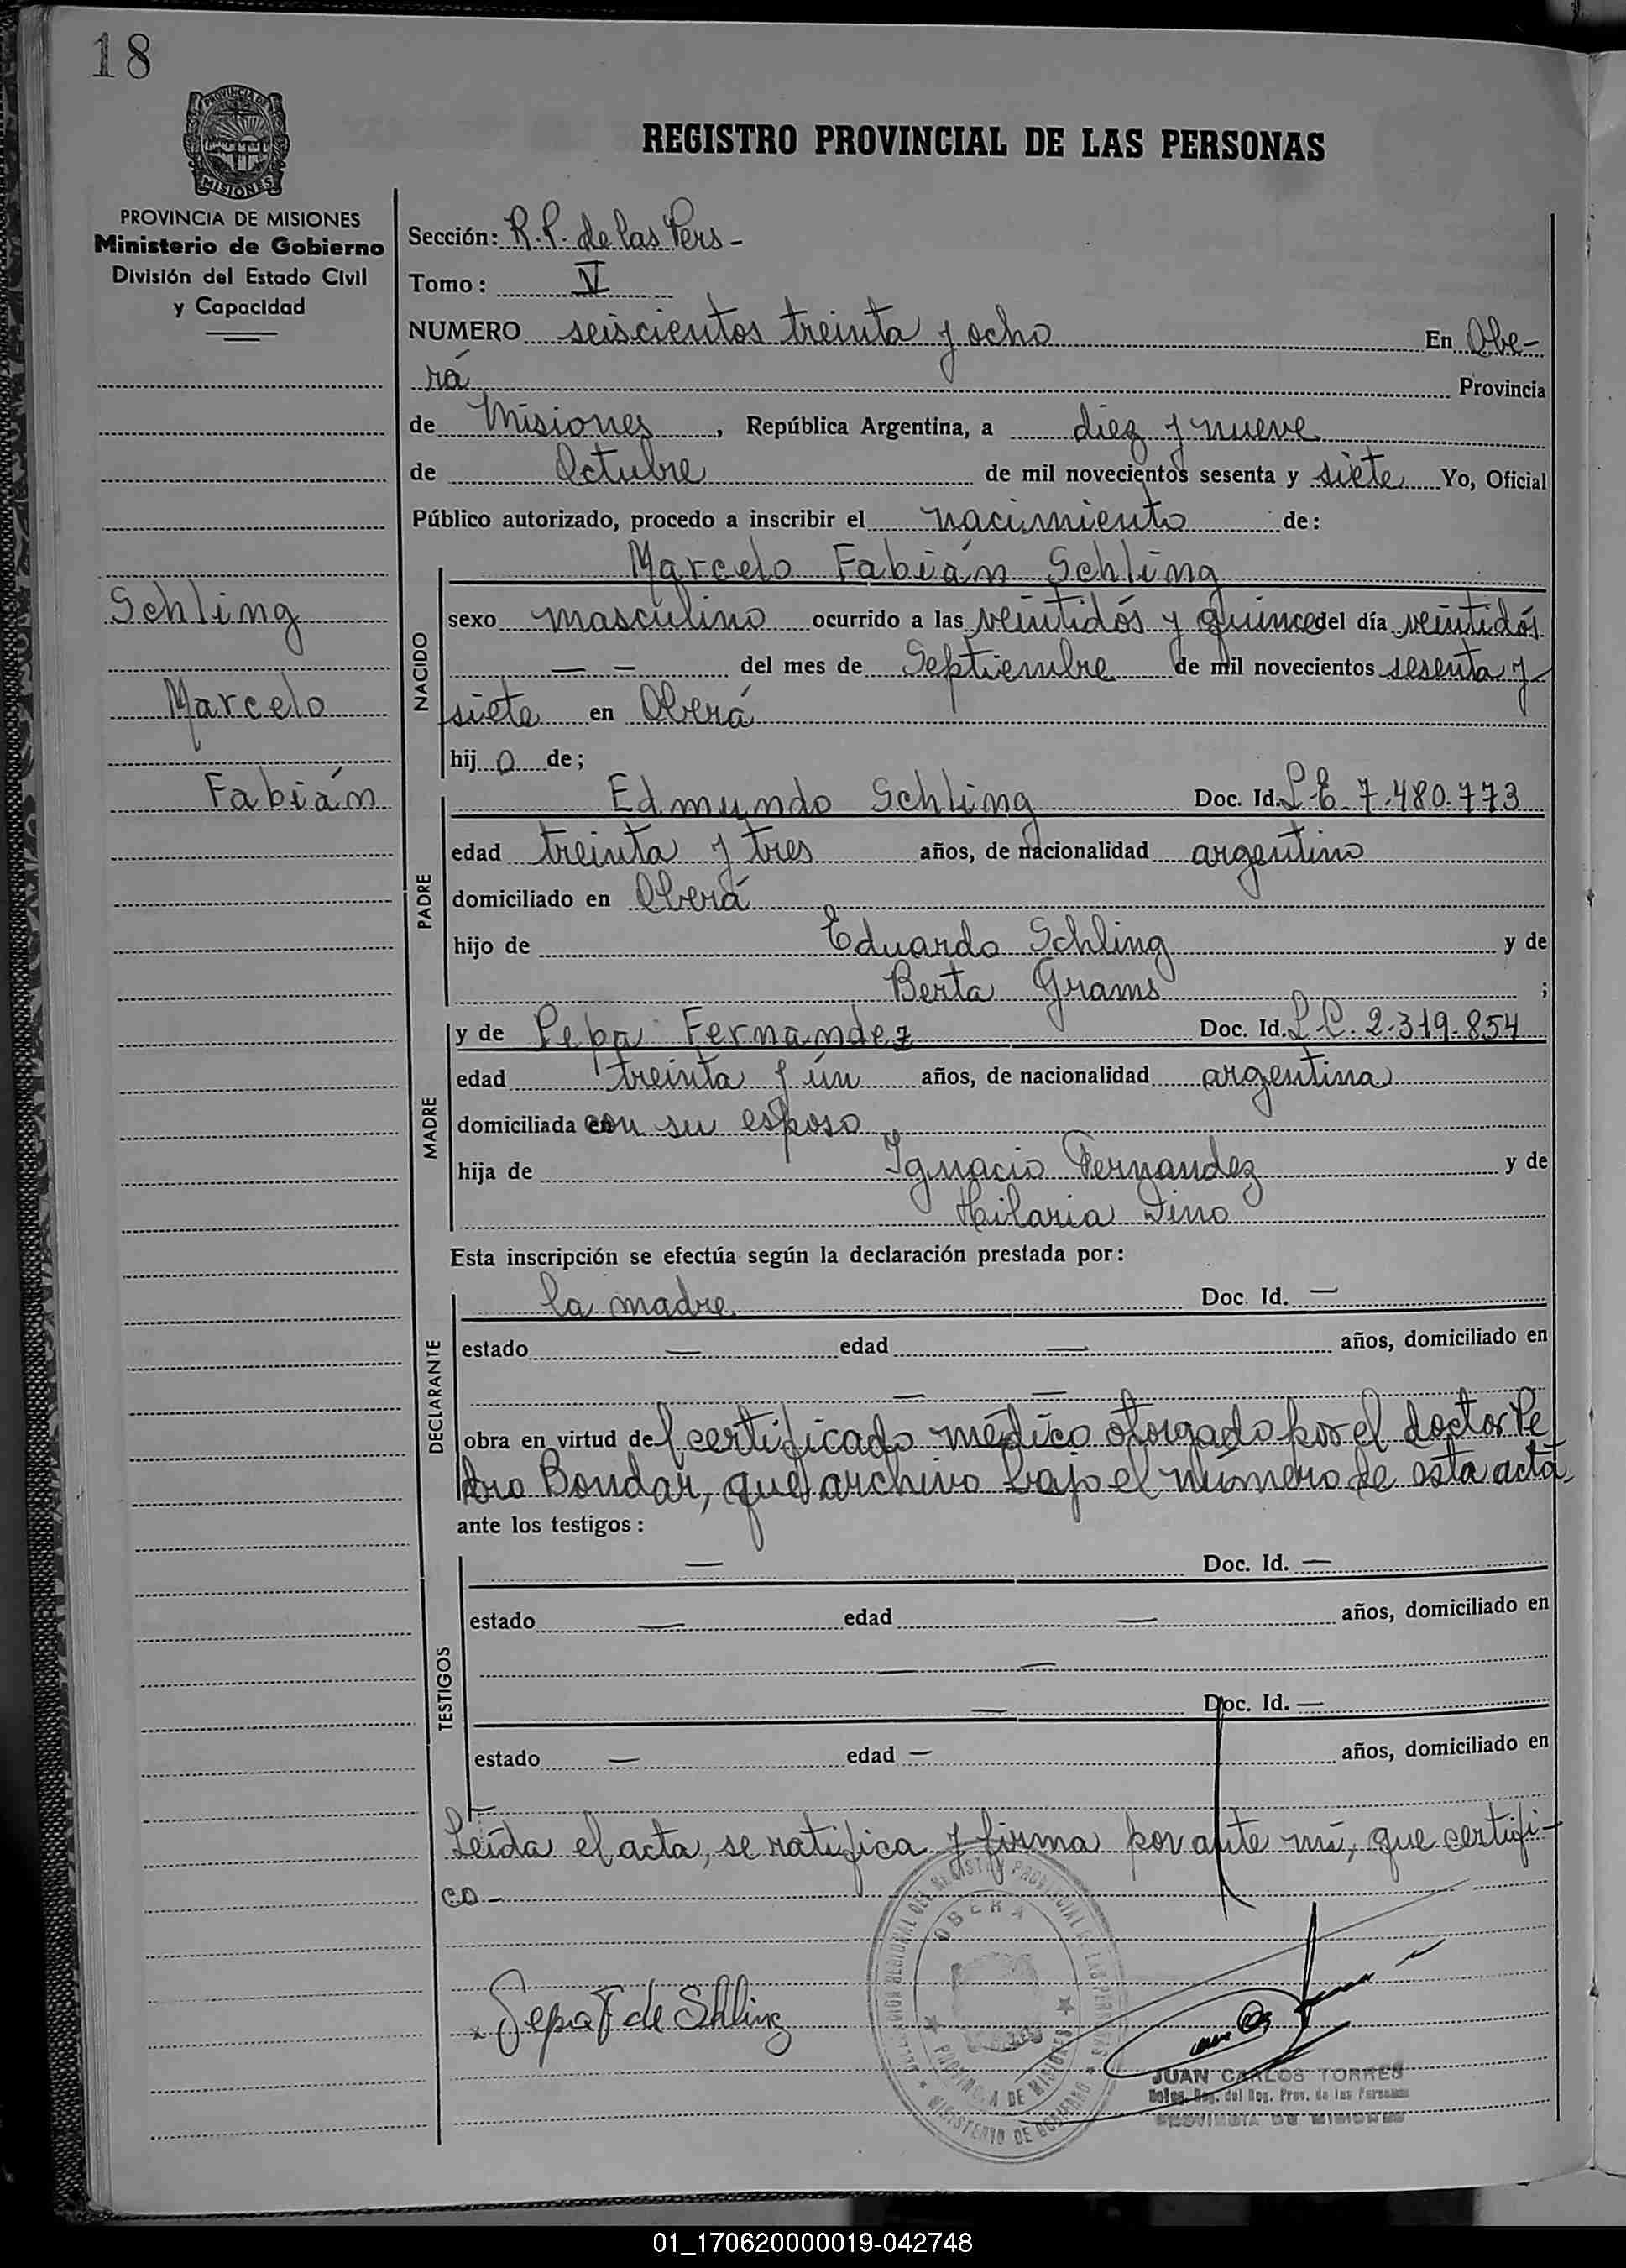 18
PROVINCIA DE
MISIONES
REGISTRO PROVINCIAL DE LAS PERSONAS
PROVINCIA DE MISIONES
Ministerio de Gobierno
División del Estado Civil
y Capacidad
Schling
Marcelo
Fabián
Sección: R.P. de las Pers -
Tomo: V
NUMERO seiscientos treinta y ocho En Obe-
rá Provincia
de Misiones, República Argentina, a diez y nueve
de Octubre de mil novecientos sesenta y siete Yo, Oficial
Público autorizado, procedo a inscribir el nacimiento de:
NACIDO
Marcelo Fabián Schling
sexo masculino ocurrido a las veintidós y quince del día veintidós
— — del mes de Septiembre de mil novecientos sesenta y
siete en Oberá
hij o de;
PADRE
Edmundo Schling Doc. Id. L.E. 7.480.773
edad treinta y tres años, de nacionalidad argentino
domiciliado en Oberá
hijo de Eduardo Schling y de
Berta Grams ;
MADRE
y de Pepa Fernandez Doc. Id. L.C. 2.319.854
edad treinta y ún años, de nacionalidad argentina
domiciliada con su esposo
hija de Ignacio Fernandez y de
Hilaria Pino
Esta inscripción se efectúa según la declaración prestada por:
DECLARANTE
la madre Doc. Id. —
estado — edad — años, domiciliado en
— —
obra en virtud del certificado médico otorgado por el doctor Pe
dro Bondar, que archivo bajo el número de esta acta
ante los testigos:
TESTIGOS
— Doc. Id. —
estado — edad — años, domiciliado en
— —
— Doc. Id. —
estado — edad — años, domiciliado en
Leída el acta, se ratifica y firma por ante mí, que certifi-
co -
DELEGACION REGIONAL DEL REGISTRO PROVINCIAL DE LAS PERSONAS
OBERA
PROVINCIA DE MISIONES
MINISTERIO DE GOBIERNO
x Pepa F de Schling
JUAN CARLOS TORRES
Deleg. Reg. del Reg. Prov. de las Personas
PROVINCIA DE MISIONES
01_170620000019-042748